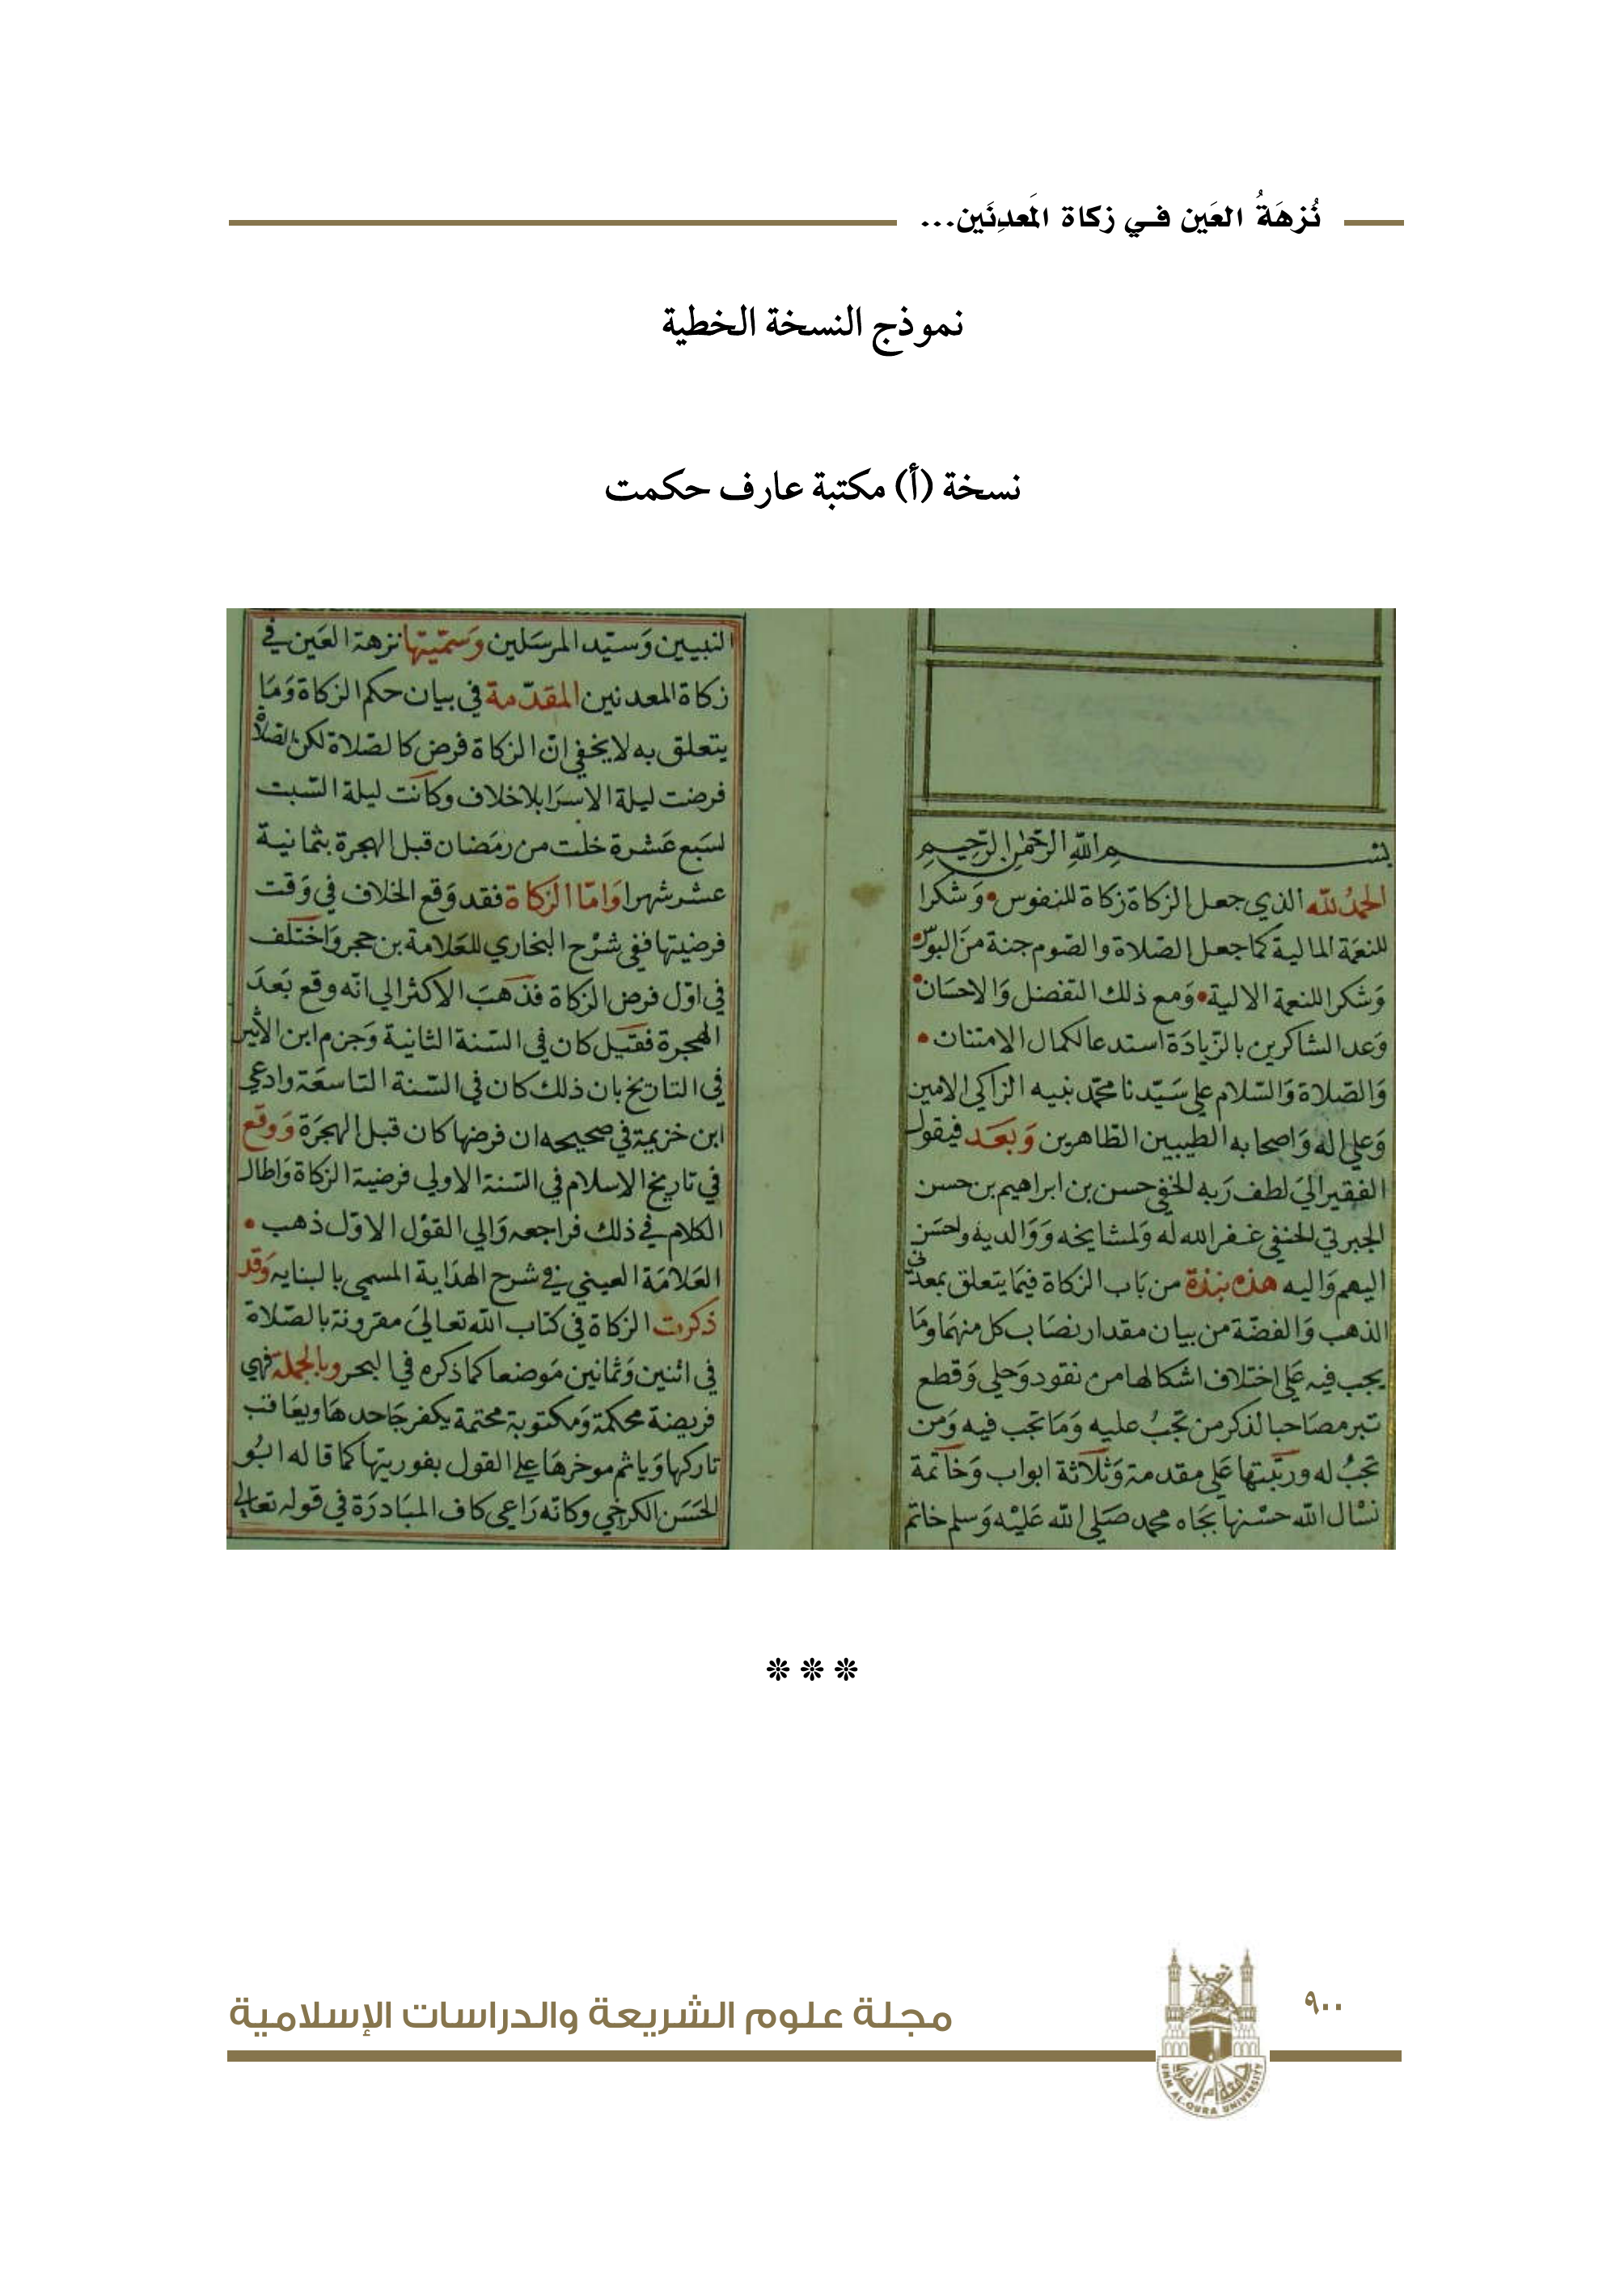 نُزهَةُ العَين فـي زكاة المَعدِنَين...
نموذج النسخة الخطية
نسخة (أ) مكتبة عارف حكمت
بسم الله الرحمن الرحيم
الحمدُ لله الذي جعل الزكاة زكاة للنفوس • وَشكرا
للنعمَة المالية كما جعل الصّلاة والصّوم جنة منَ البوس •
وَشكرا للنعمة الالية • وَمع ذلك التفضل وَالاحسَان •
وَعد الشاكرين بالزّيادَة استدعا لكمال الامتنان •
وَالصّلاة وَالسّلام علي سَيّدنا محمّد نبيه الزاكي الامين
وَعلي اله وَاصحابه الطيبين الطّاهرين وَبَعَد فيقول
الفقير اليَ لطف رَبه الخفي حسن بن ابراهيم بن حسن
الجبرتي الحنفي غفر الله له وَلمشايخه وَوَالديه واحسَن
اليهم وَاليه هذه نبذة من بَاب الزكاة فيمَا يتعلق بمعدني
الذهب وَالفضّة من بيان مقدار نصَاب كل منهمَا ومَا
يجب فيه عَلي اختلاف اشكالها من نقود وَحلي وَقطع
تبر مصَاحبا لذكر من تجبُ عليه وَمَا تجب فيه وَمن
تجبُ له ورتبتها عَلي مقدمة وَثلَاثة ابواب وَخاتمة
نسْال الله حسْنها بجَاه محمد صَلي الله عَليْه وَسلم خاتم
النبيين وَسيّد المرسَلين وَسمّيتها نزهة العَين في
زكاة المعدنين المقدّمة في بيان حكم الزكاة وَمَا
يتعلق به لا يخفي انّ الزكاة فرض كالصّلاة لكن الصلاة
فرضت ليلة الاسرَا بلا خلاف وكانَت ليلة السّبت
لسَبع عَشرة خلت من رمَضان قبل الهجرة بثمانية
عشر شهرا وَامّا الزكاة فقد وَقع الخلاف في وَقت
فرضيتها ففي شرْح البخاري للعَلامة بن حجر وَاختلف
في اوّل فرض الزكاة فذهبَ الاكثر الي انّه وقع بَعدَ
الهجرة فقيل كان في السّنة الثانية وَجزم ابن الأثير
في التاريخ بان ذلك كان في السّنة التاسعَة وادعي
ابن خزيمة في صحيحه ان فرضها كان قبل الهجَرة وَوقع
في تاريخ الاسلام في السّنة الاولي فرضية الزكاة وَاطال
الكلام في ذلك فراجعه وَالي القوْل الاوّل ذهب •
العَلامَة العيني في شرح الهدَاية المسمي بالبنايه وَقد
ذكرت الزكاة في كتاب الله تعاليَ مقرونة بالصّلاة
في اثنين وَثمانين مَوضعا كما ذكره في البحر وبالجملة فهي
فريضة محكمة وَمكتوبة محتمة يكفر جَاحدهَا ويعَاقب
تاركها وَياثم موخرهَا علي القول بفوريتها كما قاله ابُو
الحَسَن الكرخي وكانه رَاعي كاف المبَادرَة في قوله تعالي
* * *
٩٠٠
مجلة علوم الشريعة والدراسات الإسلامية
جامعة أم القرى
UMM AL-QURA UNIVERSITY